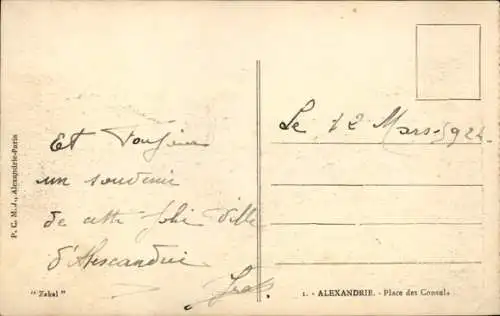 P. C. M. J., Alexandrie-Paris
Et Toujours
un souvenir
de cette jolie ville
d'Alexandrie
Le 12 Mars 1924
1. - ALEXANDRIE. - Place des Consuls
"Zekal"